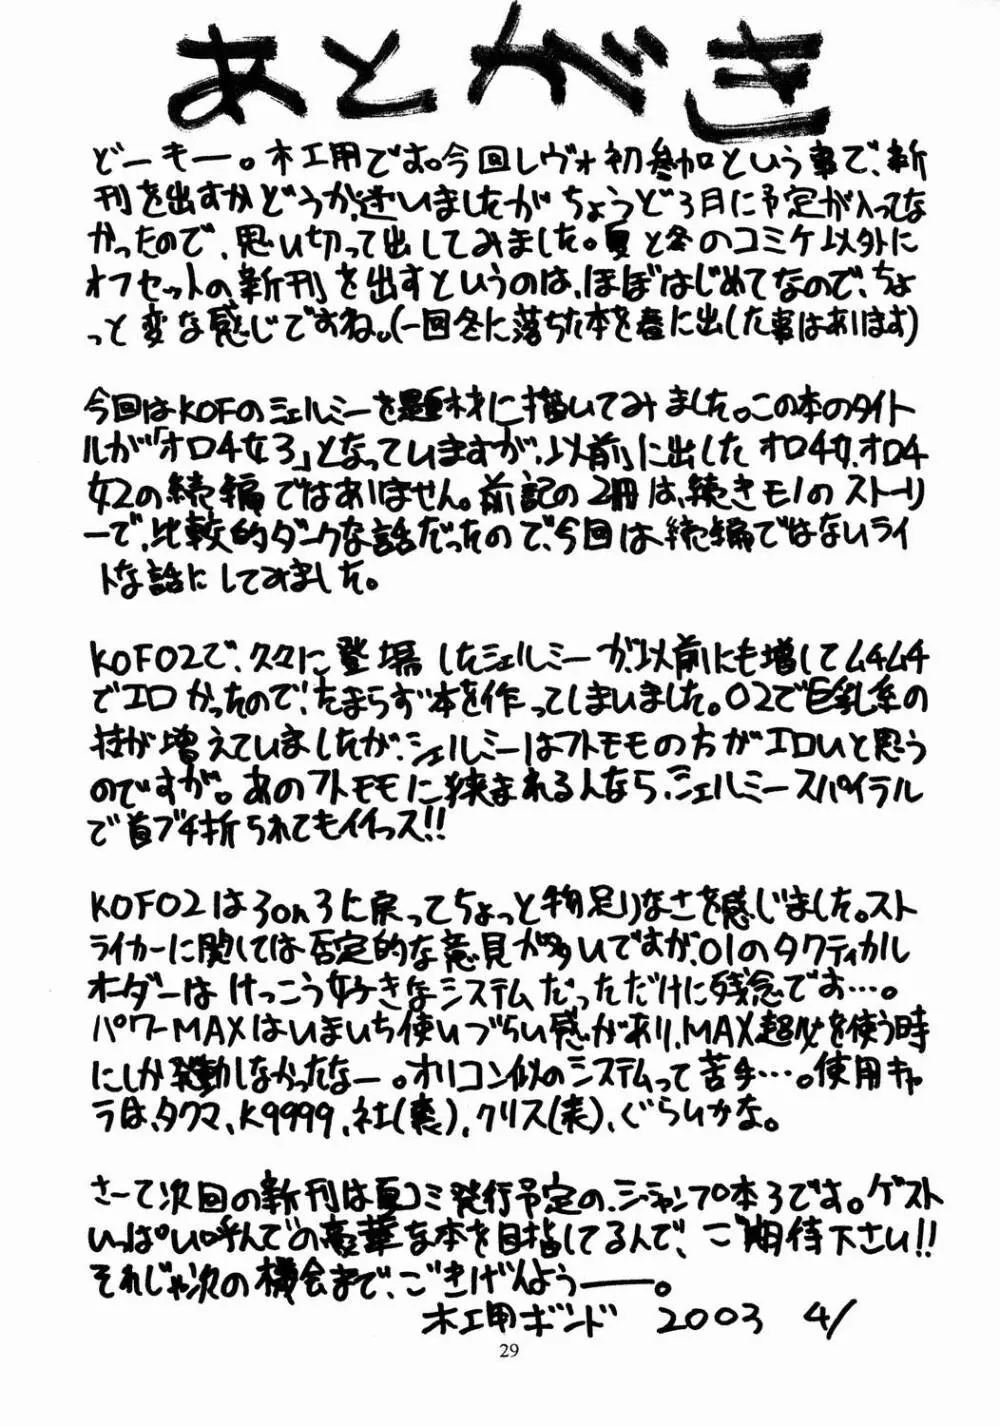 あとがき
どーもー。木工用です。今回レヴォ初参加という事で、新
刊を出すかどうか、迷いましたがちょうど3月に予定が入ってな
かったので、思い切って出してみました。夏と冬のコミケ以外に
オフセットの新刊を出すというのは、ほぼはじめてなので、ちょ
っと変な感じですね。(一回冬に落ちた本を春に出した事はあります)
今回はKOFのシェルミーを題材に描いてみました。この本のタイト
ルが「オロチ女3」となっていますが、以前に出したオロチ女、オロチ
女2の続編ではありません。前記の2冊は、続きモノのストーリ
ーで、比較的ダークな話だったので、今回は続編ではないライ
トな話にしてみました。
KOF02で、久々に登場したシェルミーが、以前にも増してムチムチ
でエロかったので、たまらず本を作ってしまいました。02で巨乳系の
技が増えていましたが、シェルミーはフトモモの方がエロいと思う
のですが。あのフトモモに狭まれる人なら、シェルミースパイラル
で首ブチ折られてもイイっス!!
KOF02は3on3に戻ってちょっと物足りなさを感じました。スト
ライカーに関しては否定的な意見が多いですが、01のタクティカル
オーダーはけっこう好きなシステムだっただけに残念でお…。
パワーMAXはいまいち使いづらい感があり、MAX超必を使う時
にしか発動しなかったなー。オリコン似のシステムって苦手…。使用キャ
ラは、タクマ、K9999、社(裏)、クリス(表)、ぐらいかな。
さーて次回の新刊は夏コミ発行予定の、ジャンプ本3です。ゲスト
いっぱい呼んでの豪華な本を目指してるんで、ご期待下さい!!
それじゃ次の機会まで、ごきげんよう――。
木工用ボンド 2003 4/
29